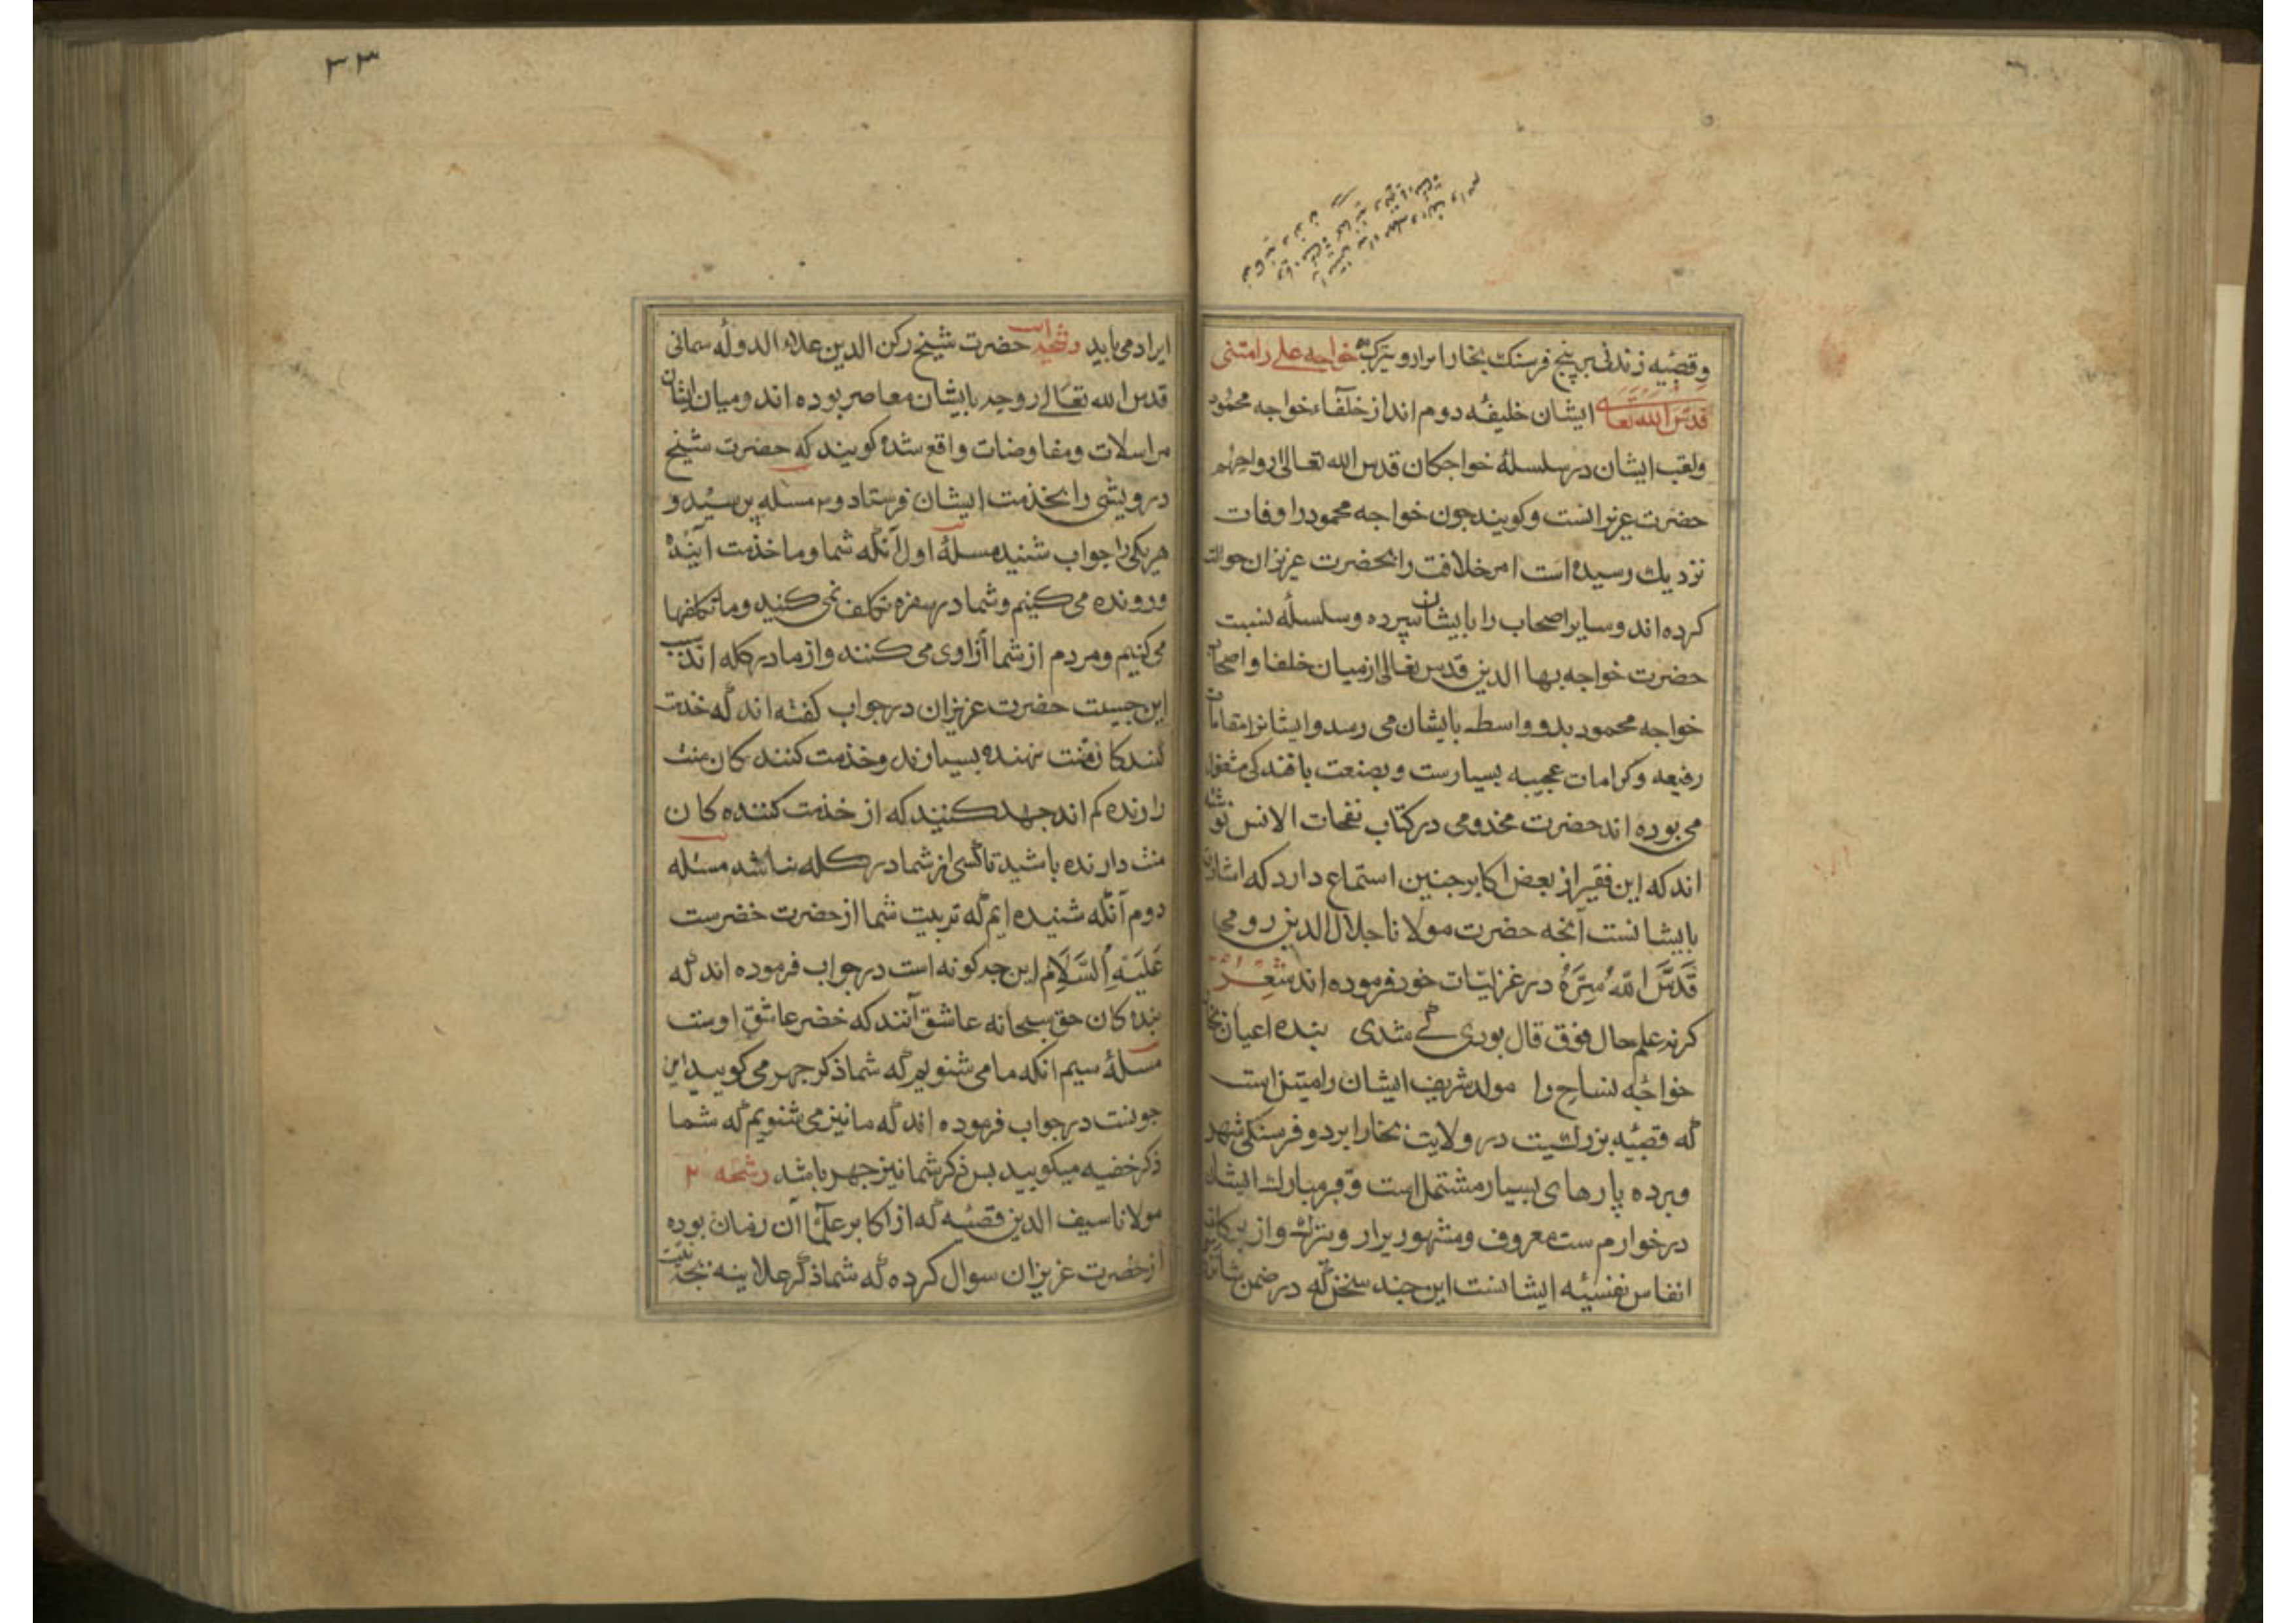 وقصبه زندنی بر پنج فرسنک بخارا برارو یترک خواجه علی رامتنی
قدس الله تعالی ایشان خلیفه دوم اند از خلفاء خواجه محمود
ولقب ایشان در سلسلهٔ خواجکان قدس الله تعالی ارواحهم
حضرت عزیزانست وکویند جون خواجه محمود را وفات
نزدیك رسیده است امر خلافت را بحضرت عزیزان حواله
کرده اند وسایر اصحاب را بایشان سپرده وسلسلهٔ نسبت
حضرت خواجه بها الدین قدس تعالی از میان خلفا واصحاب
خواجه محمود بدو واسطه بایشان می رسد وایشانرا مقامات
رفیعه وکرامات عجیبه بسیارست وبصنعت بافندکی مشغول
می بوده اند حضرت مخدومی در کتاب نفحات الانس نوشته
اند که این فقیر از بعض اکابر جنین استماع دارد که اشارت
بایشانست آنجه حضرت مولانا جلال الدین رومی
قَدَّسَ اللهُ سِرَّهُ در غزلیات خود فرموده اند شعر
کرنه علم حال فوق قال بودی کی شدی بنده اعیان بخارا
خواجه نساج را مولد شریف ایشان رامیتن است
که قصبه بزرکیست در ولایت بخارا بر دو فرسنکی شهر
وبرده پارهای بسیار مشتمل است وقبر مبارك ایشان
در خوارزم ست معروف ومشهور یزار ویتبرك واز برکات
انفاس نفسیه ایشانست این جند سخن که در ضمن
۳۳
ایراد می یابید رشحه حضرت شیخ رکن الدین علاء الدوله سمنانی
قدس الله تعالی روحه بایشان معاصر بوده اند ومیان ایشان
مراسلات ومفاوضات واقع شده کویند که حضرت شیخ
درویشی را بخذمت ایشان فرستاد و۳ مسله پرسید و
هر یکی را جواب شنید مسلهٔ اول آنکه شما وما خذمت آینده
ورونده می کنیم وشما در سفره تکلف نمی کنید وما تکلفها
می کنیم ومردم از شما آزاوی می کنند واز ما در کله اند سبب
این جیست حضرت عزیزان در جواب کفته اند که خذمت
کنندکان منت نهنده بسیارند وخذمت کنندکان منت
دارنده کم اند جهد کنید که از خذمت کننده کان
منت دارنده باشید تا کسی از شما در کله نباشد مسئله
دوم آنکه شنیده ایم که تربیت شما از حضرت خضرست
عَلَیْهِ السَّلَام این جه کونه است در جواب فرموده اند که
بنده کان حق سبحانه عاشق آنند که خضر عاشق اوست
مسلهٔ سیم انکه ما می شنویم که شما ذکر جهر می کویید این
جونست در جواب فرموده اند که ما نیز می شنویم که شما
ذکر خفیه میکویید بس ذکر شما نیز جهر باشد رشحه ۲
مولانا سیف الدین قصبه که از اکابر علماء آن زمان بوده
از حضرت عزیزان سوال کرده که شما ذکر علانیه بجه نیت